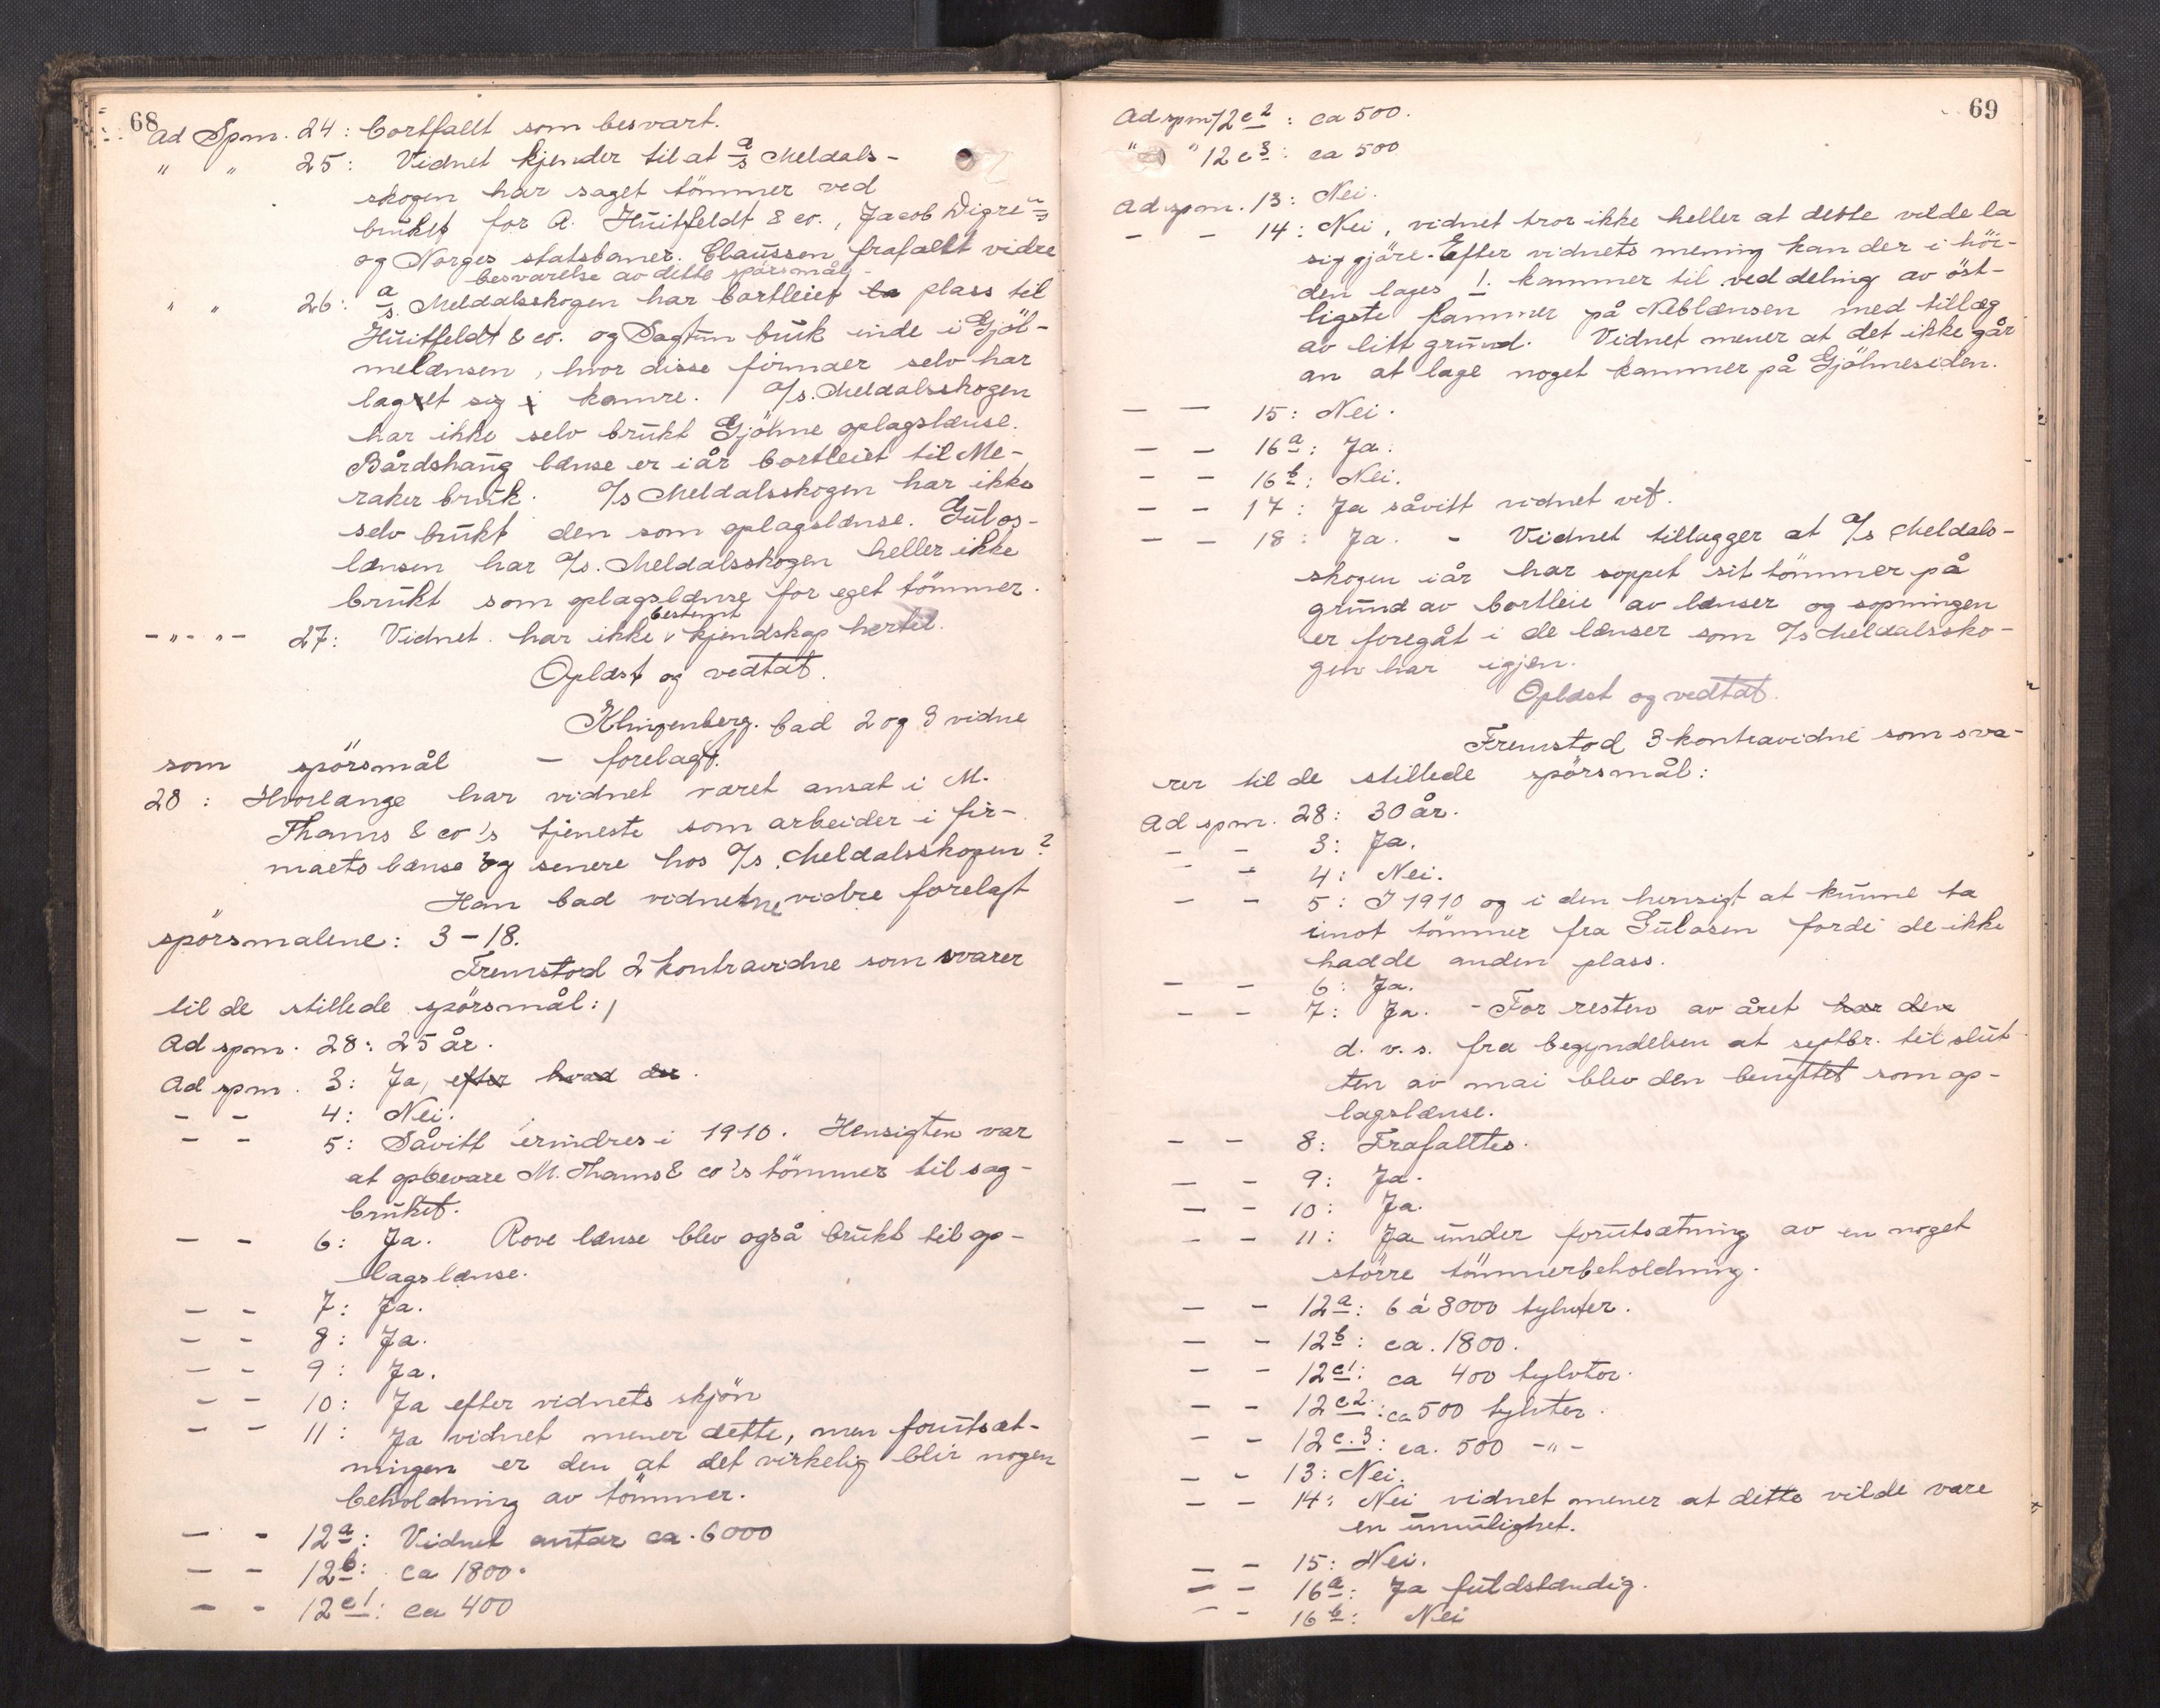 68
Ad Spm. 24: bortfallt som besvart.
" " 25: Vidnet kjender til at a/s Meldals-
skogen har saget tömmer ved
bruket for A. Huitfeldt & co., Jacob Digre
og Norges statsbaner. Claussen frafallt vidre
besvarelse av dette spörsmål.
" " 26: a/s. Meldalsskogen har bortleiet ta plass til
Huitfeldt & co. og Sagtun bruk inde i Gjöl-
melænsen, hvor disse firmaer selv har
laget sig i kamre. A/s. Meldalsskogen
har ikke selv brukt Gjölme oplagslænse.
Bårdshaug lænse er iår bortleiet til Me-
raker bruk. A/s Meldalsskogen har ikke
selv brukt den som oplagslænse. Gulos-
lænsen har A/s. Meldalsskogen heller ikke
brukt som oplagslænse for eget tömmer.
bestemt
-"- "- 27: Vidnet har ikke v kjendskap hertil.
Oplæst og vedtat.
Klingenberg bad 2 og 3 vidne
som spörsmål - forelagt.
28: Hvorlænge har vidnet været ansat i M.
Thams & co's tjeneste som arbeider i fir-
maets lænse og senere hos A/s. Meldalsskogen?
Han bad vidnetne vidre forelagt
spörsmalene: 3-18.
Fremstod 2 kontravidne som svarer
til de stillede spörsmål:
Ad spm. 28: 25 år.
Ad spm. 3: Ja, efter hvad der.
- - 4: Nei.
- - 5: Såvitt erindres i 1910. Hensigten var
at opbevare M. Thams & co's tömmer til sag-
bruket.
- - 6: Ja. Rove lænse blev også brukt til op-
lagslænse.
- - 7: Ja.
- - 8: Ja.
- - 9: Ja.
- - 10: Ja efter vidnets skjön
- - 11: Ja vidnet mener dette, men forutsæt-
ningen er den at det virkelig blir nogen
beholdning av tömmer.
- - 12a: Vidnet antar ca. 6000
- - 12b: ca 1800.
- - 12c1: ca 400
69
Ad spm 12c2: ca 500.
" " 12c3: ca 500
Ad spm. 13: Nei.
- - 14: Nei, vidnet tror ikke heller at dette vilde la
sig gjöre. Efter vidnets mening kan der i höi-
den lages 1. kammer til ved deling av öst-
ligste kammer på Neblænsen med tillæg
av litt grund. Vidnet mener at det ikke går
an at lage noget kammer på Gjölmesiden.
- - 15: Nei.
- - 16a: Ja.
- - 16b: Nei.
- - 17: Ja såvitt vidnet vet.
- - 18: Ja. - Vidnet tillægger at A/s Meldals-
skogen iår har soppet sit tömmer på
grund av bortleie av lænser og sopningen
er foregåt i de lænser som A/s Meldalssko-
gen har igjen.
Oplæst og vedtat.
Fremstod 3 kontravidne som sva-
rer til de stillede spörsmål:
Ad spm. 28: 30 år.
- - 3: Ja.
- 4: Nei.
- - 5: I 1910 og i den hensigt at kunne ta
imot tömmer fra Gulosen fordi de ikke
hadde anden plass.
- - 6: Ja.
- - 7: Ja. - For resten av året har den
d. v. s. fra begyndelsen at septbr. til slut-
ten av mai blev den benyttet som op-
lagslænse.
- - 8: Frafalltes.
- - 9: Ja.
- - 10: Ja.
- - 11: Ja under forutsætning av en noget
större tömmerbeholdning.
- - 12a: 6 á 8000 tylvter.
- - 12b: ca. 1800.
- - 12c1: ca 400 tylvter.
- - 12c2: ca 500 tylvter.
- - 12c.3: ca. 500 -"-
- - 13: Nei.
- - 14: Nei vidnet mener at dette vilde være
en umulighet.
- - 15: Nei.
- - 16a: Ja fuldstændig.
- - 16b: Nei